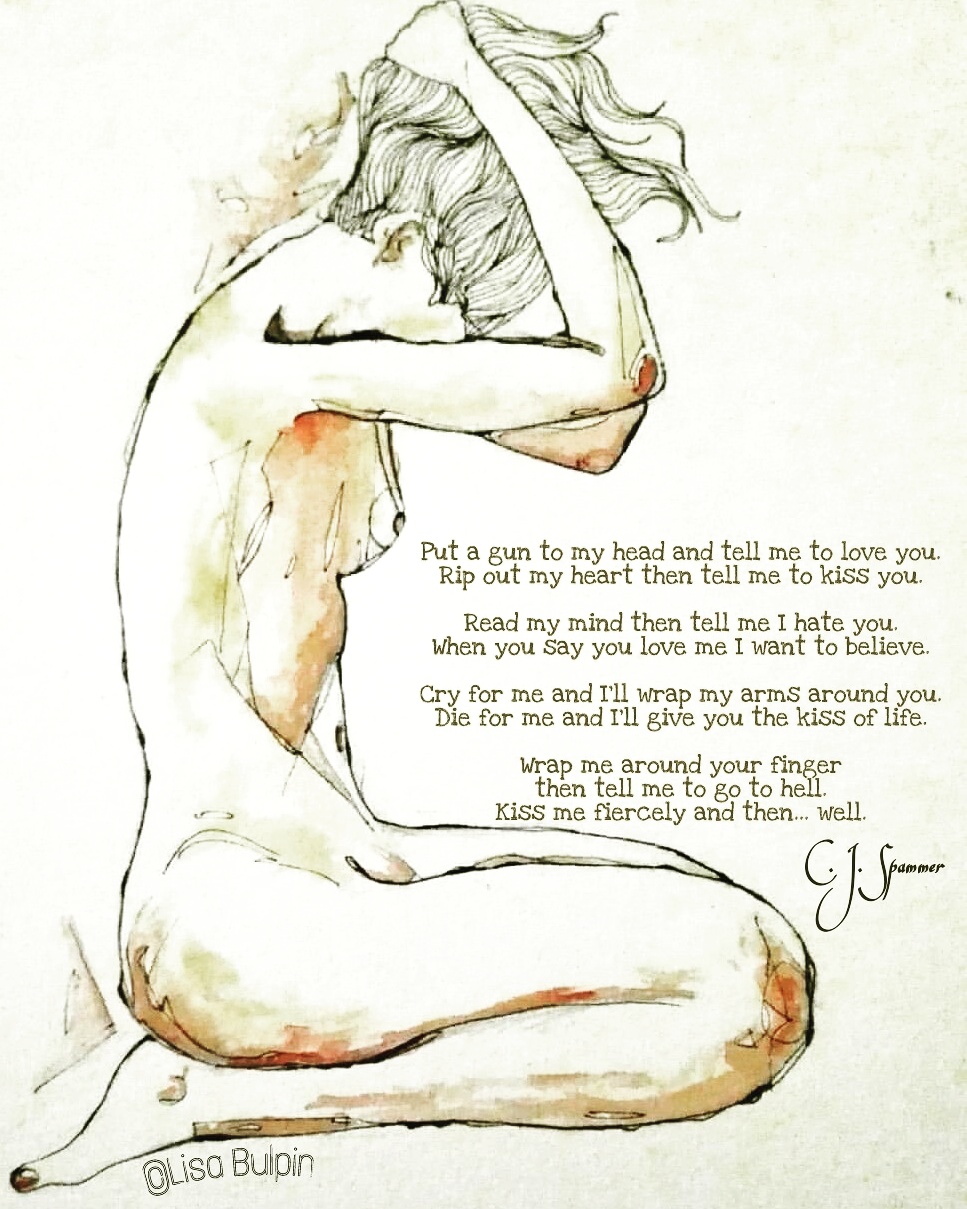 Put a gun to my head and tell me to love you.
Rip out my heart then tell me to kiss you.
Read my mind then tell me I hate you.
When you say you love me I want to believe.
Cry for me and I'll wrap my arms around you.
Die for me and I'll give you the kiss of life.
Wrap me around your finger
then tell me to go to hell.
Kiss me fiercely and then... well.
C. J. Spammer
@Lisa Bulpin